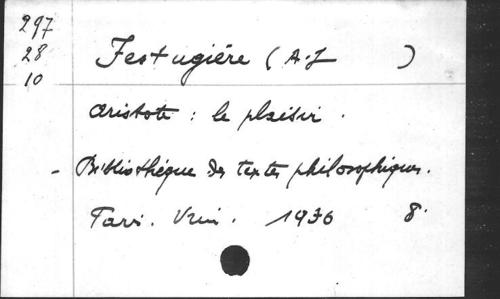 297
28
10
Festugière (A-J )
Aristote : le plaisir .
- Bibliothèque des textes philosophiques.
Paris. Vrin. 1936 8.